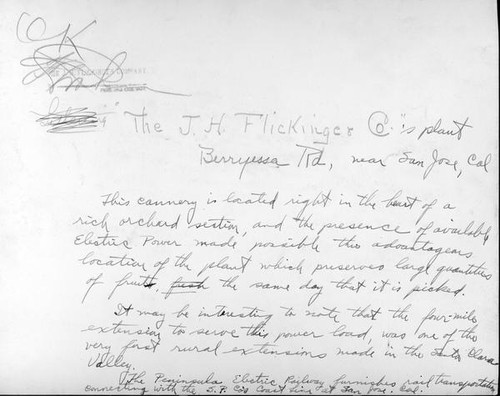 OK
"The J. H. Flickinger Co."'s plant
Berryessa Rd, near San Jose, Cal
This cannery is located right in the heart of a
rich orchard section, and the presence of available
Electric Power made possible the advantageous
location of the plant which preserves large quantities
of fruits, fresh the same day that it is picked.
It may be interesting to note that the four-mile
extension to serve this power load, was one of the
very first rural extensions made in the Santa Clara
Valley.
The Peninsula Electric Railway furnishes rail transportation
connecting with the S.P. Co's Coast Line at San Jose. Cal.